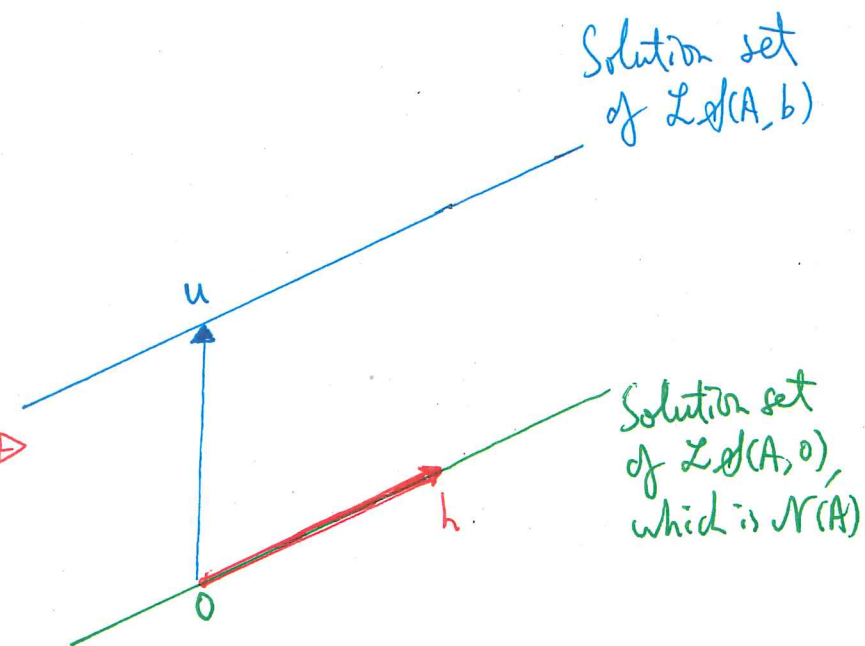 Solution set
of LS(A, b)
u
Solution set
of LS(A, 0),
which is N(A)
h
0